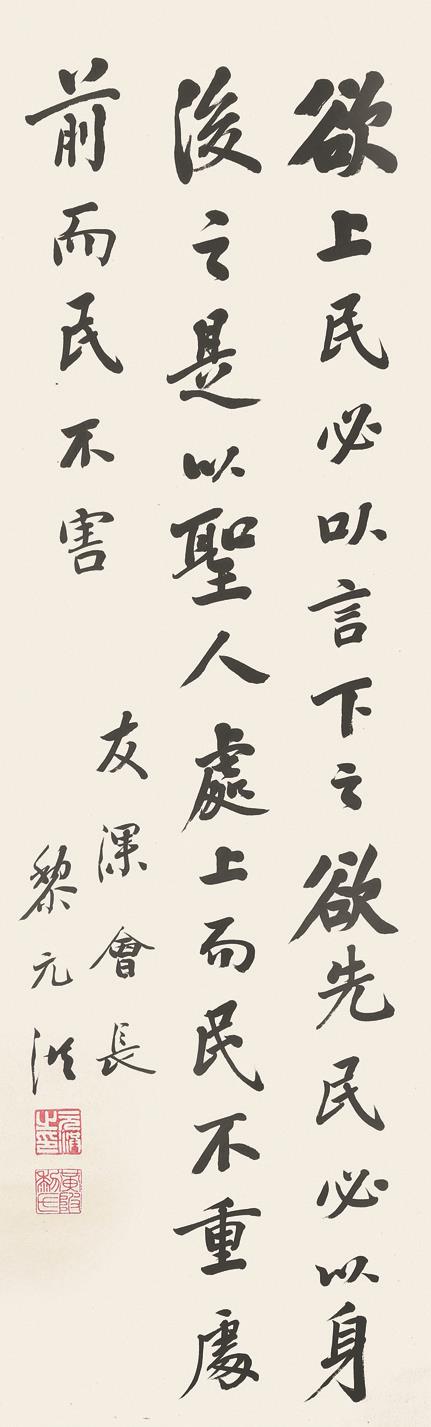 欲上民必以言下之欲先民必以身
後之是以聖人處上而民不重處
前而民不害
友會長
黎元洪
元洪之印
黃陂黎氏